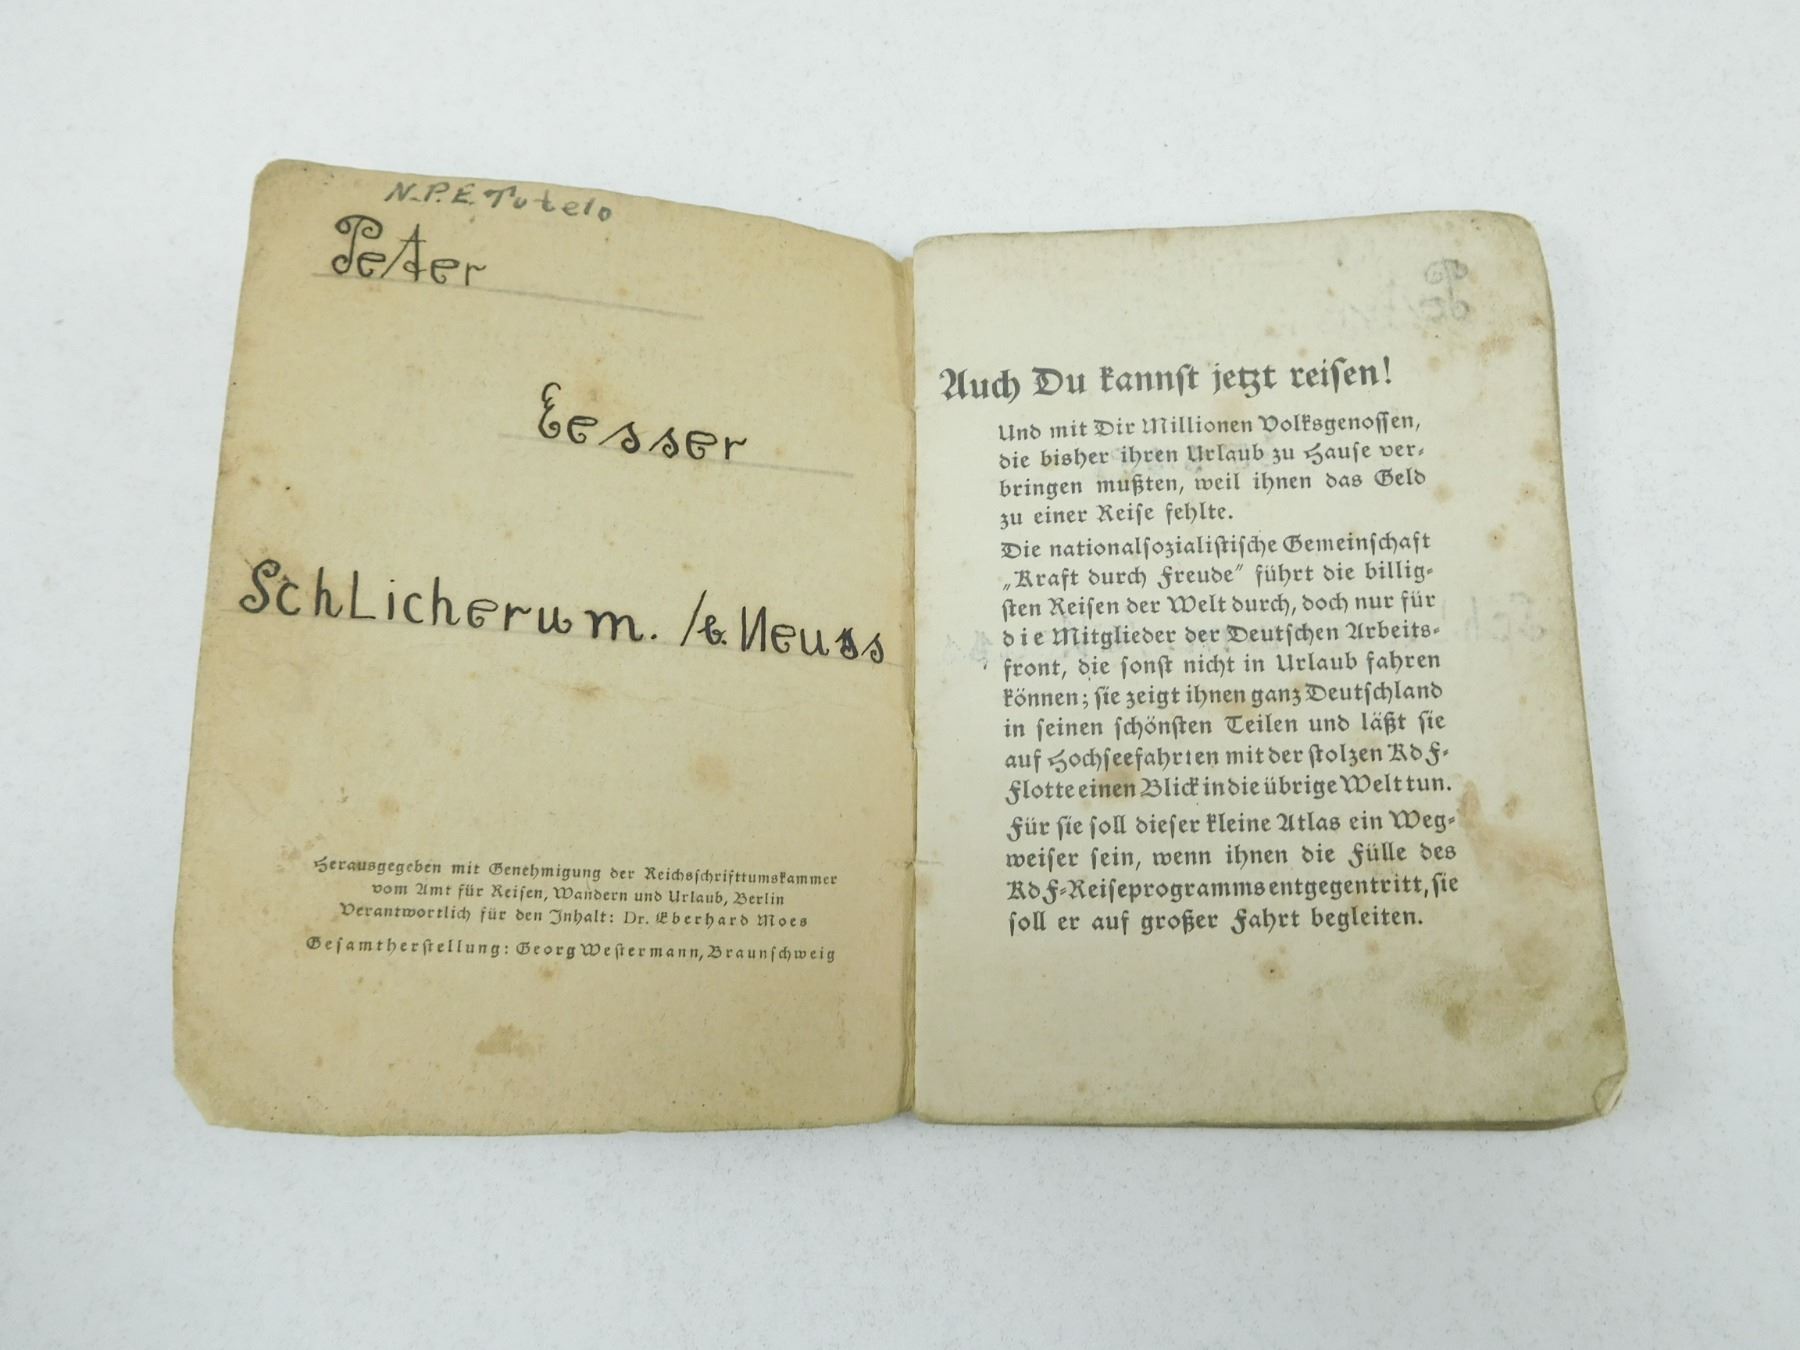 N.P.E. Tutelo
Peter
Eesser
SchLicherum. /b. Neuss
Herausgegeben mit Genehmigung der Reichsschrifttumskammer
vom Amt für Reisen, Wandern und Urlaub, Berlin
Verantwortlich für den Inhalt: Dr. Eberhard Moes
Gesamtherstellung: Georg Westermann, Braunschweig
Auch Du kannst jetzt reisen!
Und mit Dir Millionen Volksgenossen,
die bisher ihren Urlaub zu Hause ver-
bringen mußten, weil ihnen das Geld
zu einer Reise fehlte.
Die nationalsozialistische Gemeinschaft
„Kraft durch Freude“ führt die billig-
sten Reisen der Welt durch, doch nur für
die Mitglieder der Deutschen Arbeits-
front, die sonst nicht in Urlaub fahren
können; sie zeigt ihnen ganz Deutschland
in seinen schönsten Teilen und läßt sie
auf Hochseefahrten mit der stolzen KdF-
Flotte einen Blick in die übrige Welt tun.
Für sie soll dieser kleine Atlas ein Weg-
weiser sein, wenn ihnen die Fülle des
KdF-Reiseprogramms entgegentritt, sie
soll er auf großer Fahrt begleiten.